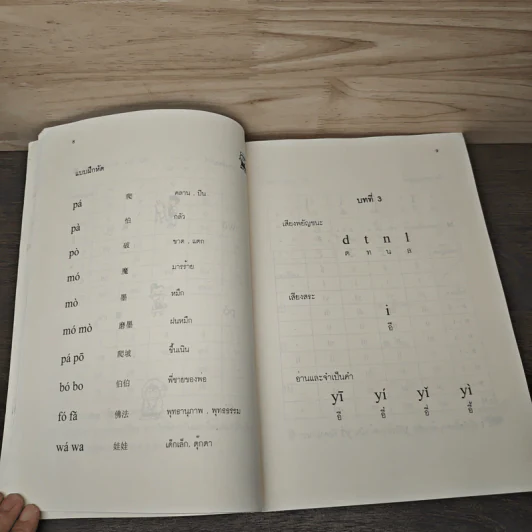 แบบฝึกหัด
pá 爬 คลาน , ปีน
pà กลัว
pò 破 ขาด , แตก
mó 魔 มารร้าย
mò 墨 หมึก
mó mò 磨墨 ฝนหมึก
pá pō 爬坡 ขึ้นเนิน
bó bo 伯伯 พี่ชายของพ่อ
fó fǎ 佛法 พุทธานุภาพ , พุทธธรรม
wá wa 娃娃 เด็กเล็ก, ตุ๊กตา
บทที่ 3
เสียงพยัญชนะ
d t n l
ต ท น ล
เสียงสระ
i
อี
อ่านและจำเป็นคำ
yī yí yǐ yì